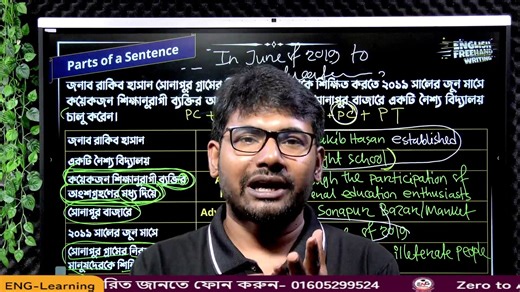 Parts of a Sentence
In June of 2019 to
ENGLISH
FREEHAND
WRITING
জনাব রাকিব হাসান সোনাপুর গ্রামের শিক্ষিত করতে ২০১৯ সালের জুন মাসে
কয়েকজন শিক্ষানুরাগী ব্যক্তির সোনাপুর বাজারে একটি নৈশ্য বিদ্যালয়
চালু করেন।
PC + PC + PT
জনাব রাকিব হাসান
Hasan established
একটি নৈশ্য বিদ্যালয়
school
কয়েকজন শিক্ষানুরাগী ব্যক্তির
the participation of
অংশগ্রহণের মধ্য দিয়ে
education enthusiasts
সোনাপুর বাজারে
Sonapur Bazar/Market
২০১৯ সালের জুন মাসে
of 2019
সোনাপুর গ্রামের
illiterate people
মানুষদেরকে
ENG-Learning
রিত জানতে ফোন করুন- 01605299524
Zero to